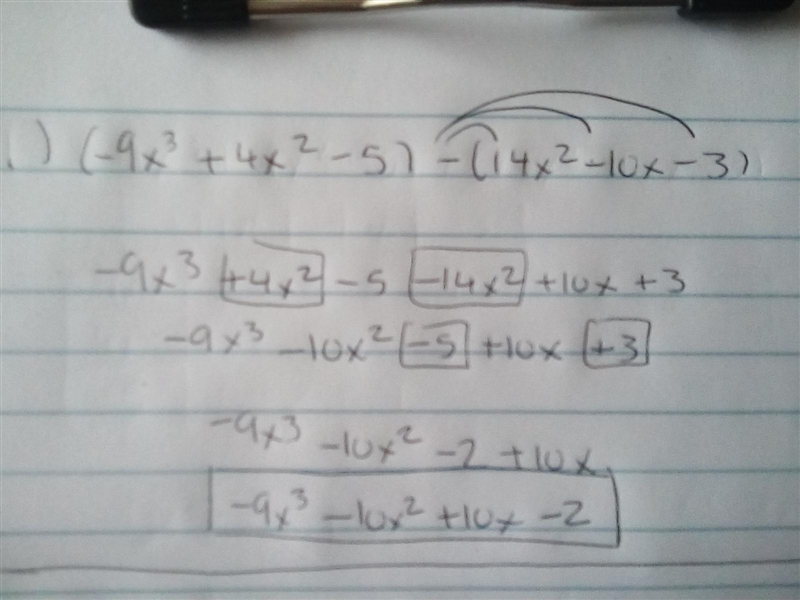 .) (-9x³ + 4x² - 5) - (14x² - 10x - 3)
-9x³ +4x² - 5 -14x² + 10x + 3
-9x³ - 10x² -5 +10x +3
-9x³ - 10x² - 2 + 10x
-9x³ - 10x² + 10x - 2